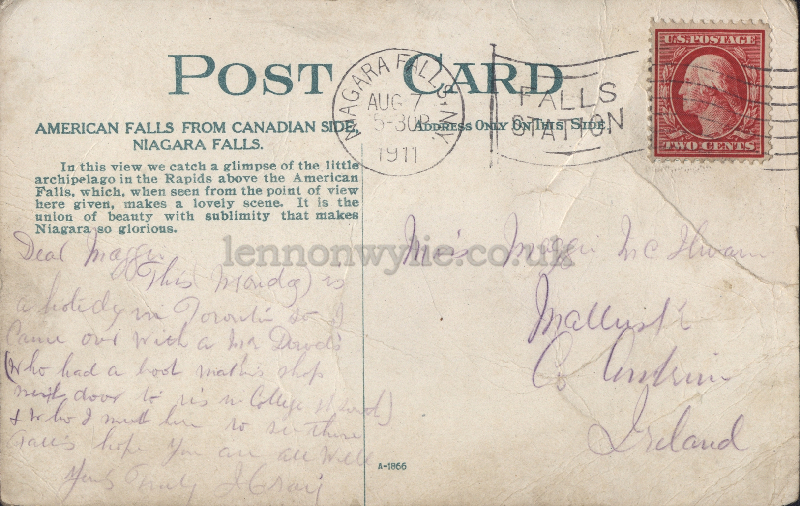 POST CARD
NIAGARA FALLS, N.Y.
AUG 7
5-30P
1911
FALLS
STATION
U.S. POSTAGE
TWO CENTS
AMERICAN FALLS FROM CANADIAN SIDE,
NIAGARA FALLS.
ADDRESS ONLY ON THIS SIDE.
In this view we catch a glimpse of the little
archipelago in the Rapids above the American
Falls, which, when seen from the point of view
here given, makes a lovely scene. It is the
union of beauty with sublimity that makes
Niagara so glorious.
lennonwylie.co.uk
Dear Maggie
This (Monday) is
a holiday in Toronto so I
Came over with a Mr
(Who had a boot shop
next door to us in College
& Who I met here to see these
Falls hope you are all Well
Yours Truly J Gray
Miss Maggie Mc Ilwaine
Mallusk
Co Antrim
Ireland
A-1866